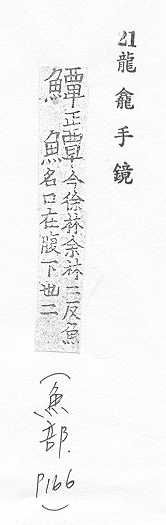 21 龍龕手鏡
鱏正鱏今徐林余林二反魚
名口在腹下也二
(魚部. P166)